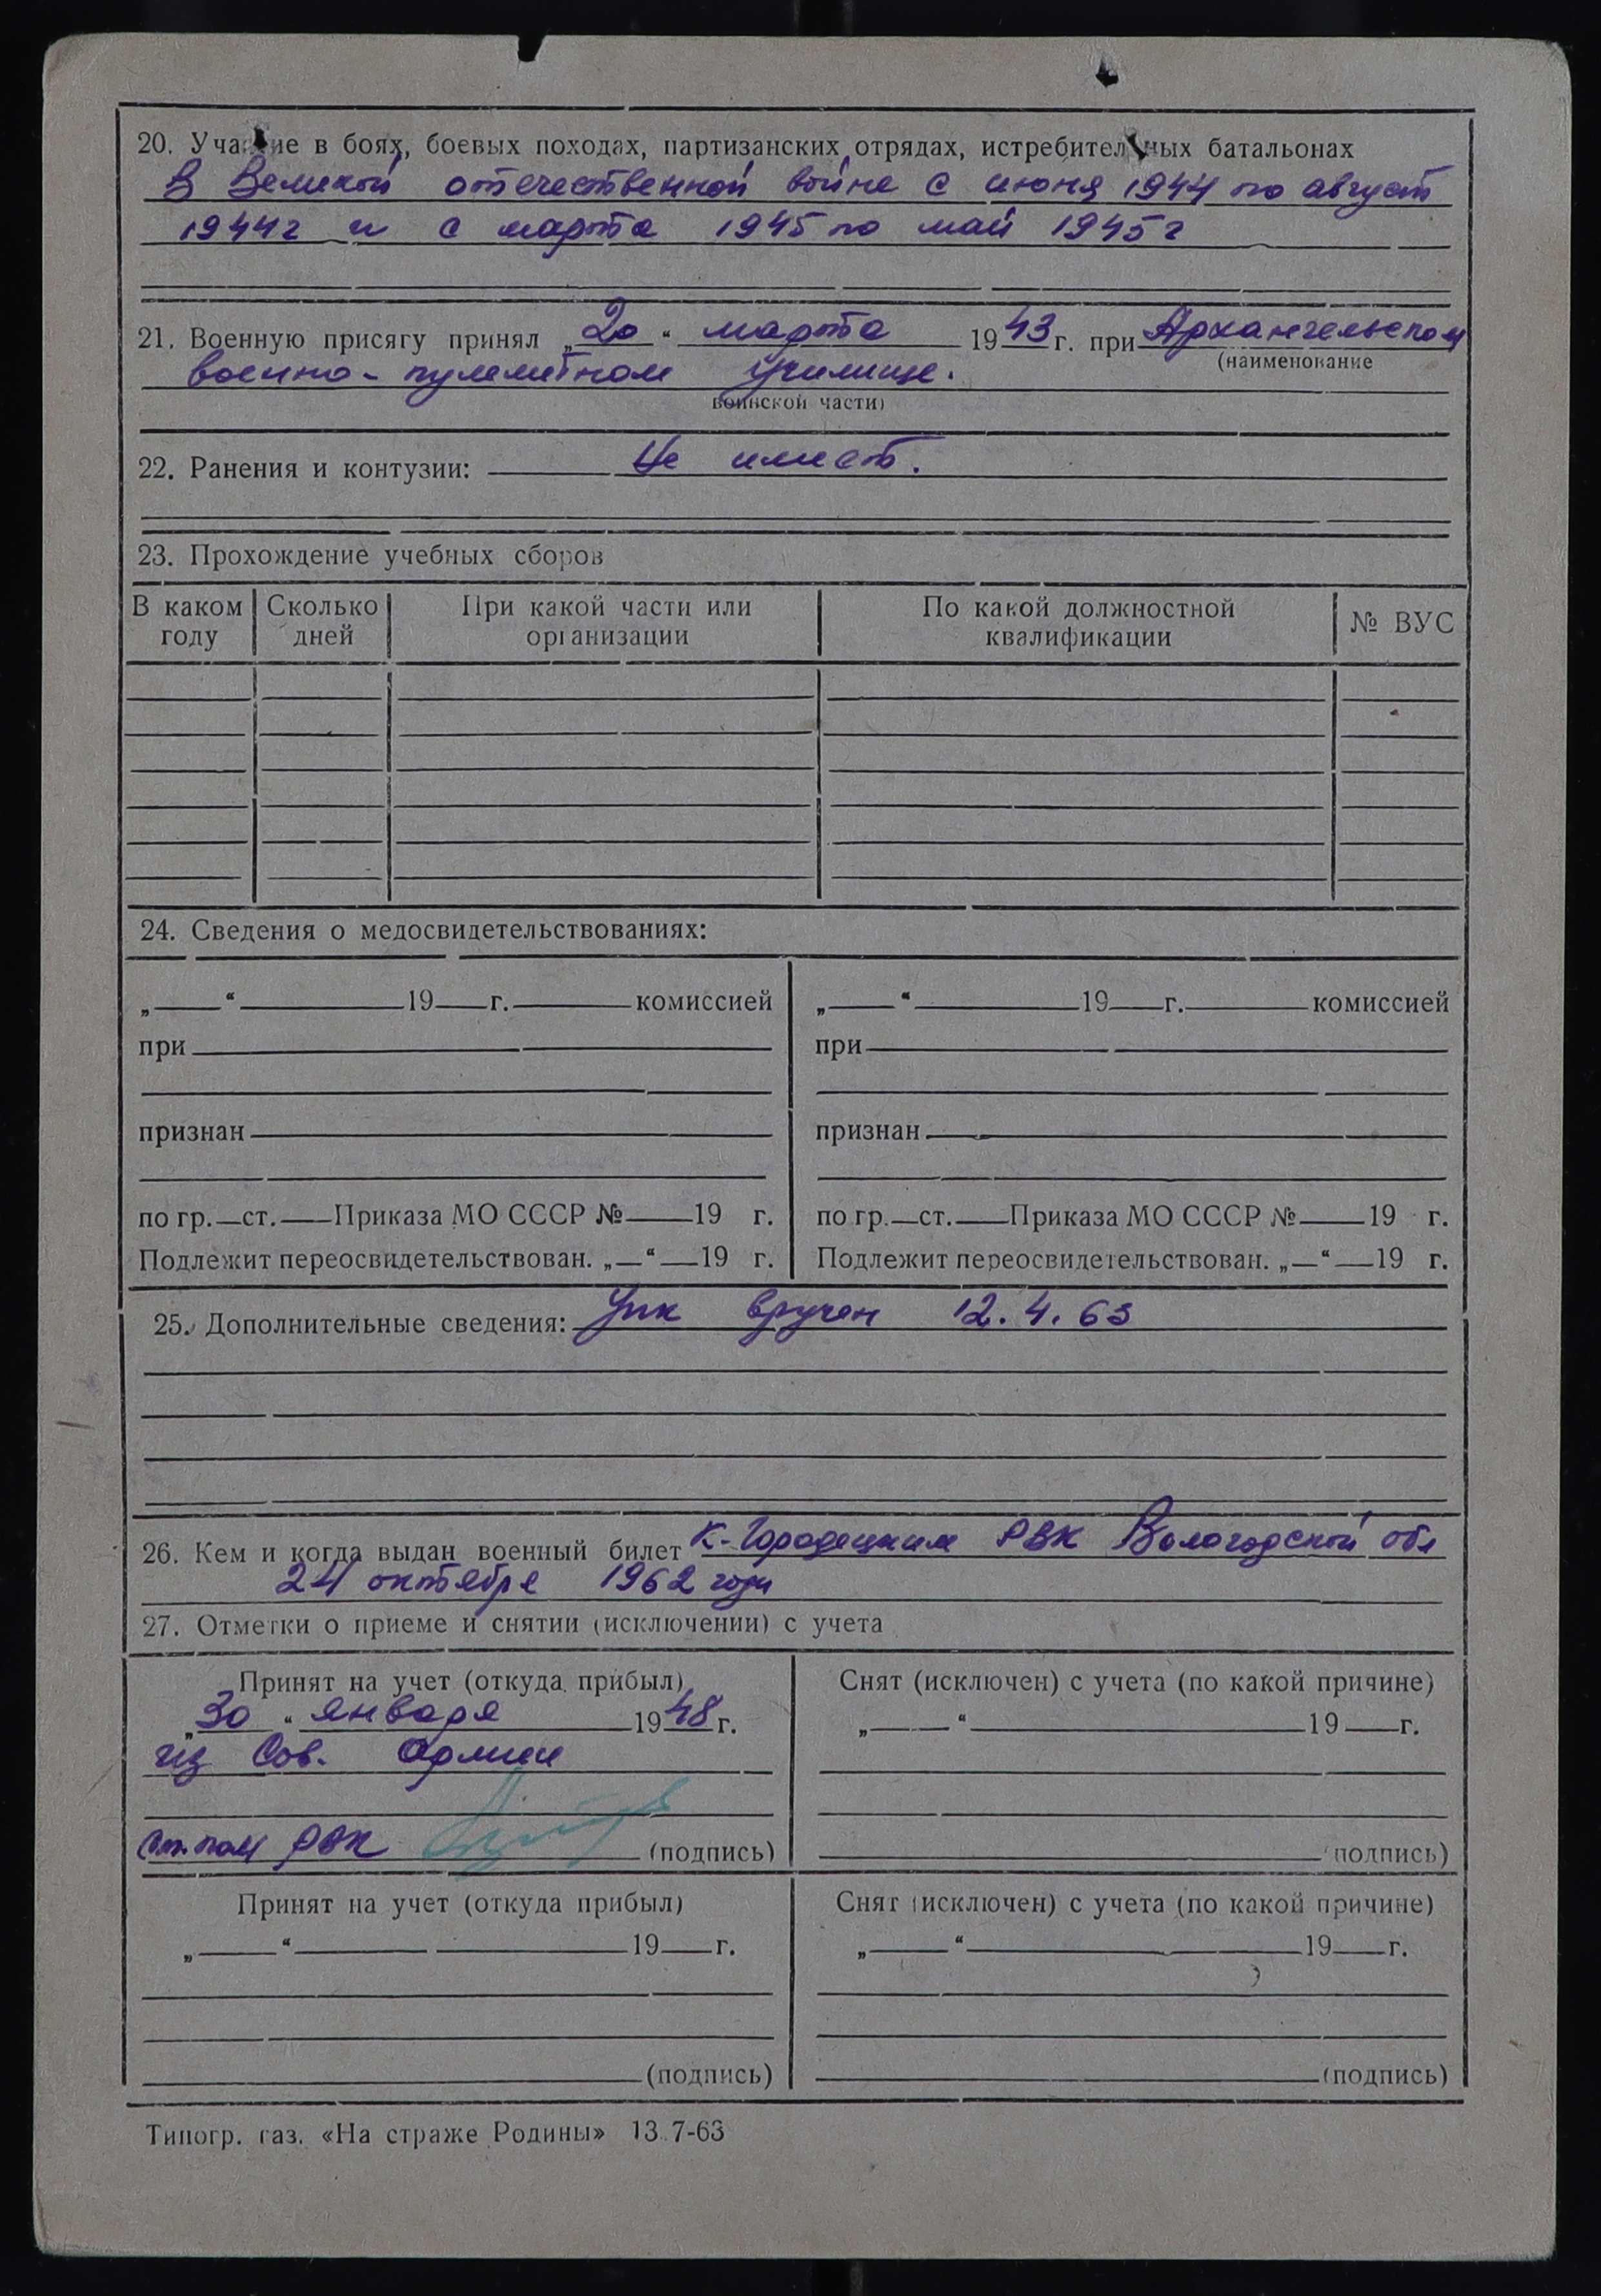 20. Участие в боях, боевых походах, партизанских отрядах, истребительных батальонах
В Великой отечественной войне с июня 1944 по август
1944г и с марта 1945 по май 1945г
21. Военную присягу принял „20“ марта 1943 г. при Архангельском
(наименование
военно-пулеметном училище.
воинской части)
22. Ранения и контузии: Не имеет.
23. Прохождение учебных сборов
В каком году | Сколько дней | При какой части или организации | По какой должностной квалификации | № ВУС
24. Сведения о медосвидетельствованиях:
„ “ 19 г. комиссией
при
признан
по гр. ст. Приказа МО СССР № 19 г.
Подлежит переосвидетельствован. „ “ 19 г.
„ “ 19 г. комиссией
при
признан
по гр. ст. Приказа МО СССР № 19 г.
Подлежит переосвидетельствован. „ “ 19 г.
25. Дополнительные сведения: Упк вручен 12.4.63
26. Кем и когда выдан военный билет К-Городецким РВК Вологодской обл
24 октября 1962 года
27. Отметки о приеме и снятии (исключении) с учета
Принят на учет (откуда прибыл)
„30“ января 1948 г.
из Сов. Армии
Ст. пом РВК (подпись)
Снят (исключен) с учета (по какой причине)
„ “ 19 г.
(подпись)
Принят на учет (откуда прибыл)
„ “ 19 г.
(подпись)
Снят (исключен) с учета (по какой причине)
„ “ 19 г.
(подпись)
Типогр. газ. «На страже Родины» 13.7-63